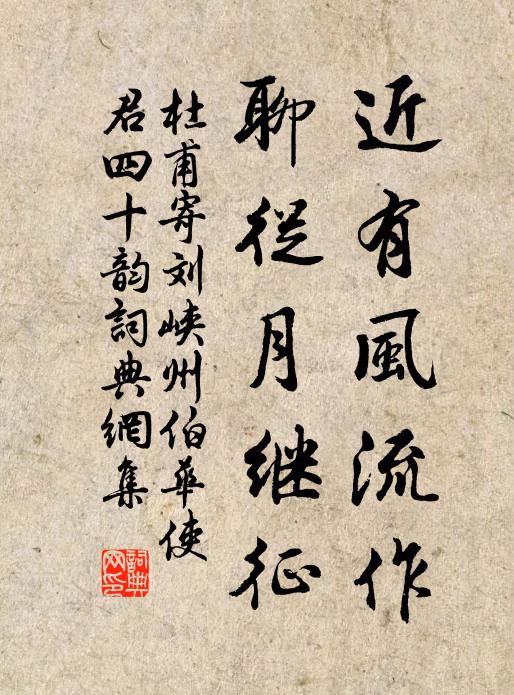 近有風流作
聊從月继征
杜甫寄刘峽州伯華使
君四十韵詞典網集
詞典
网印